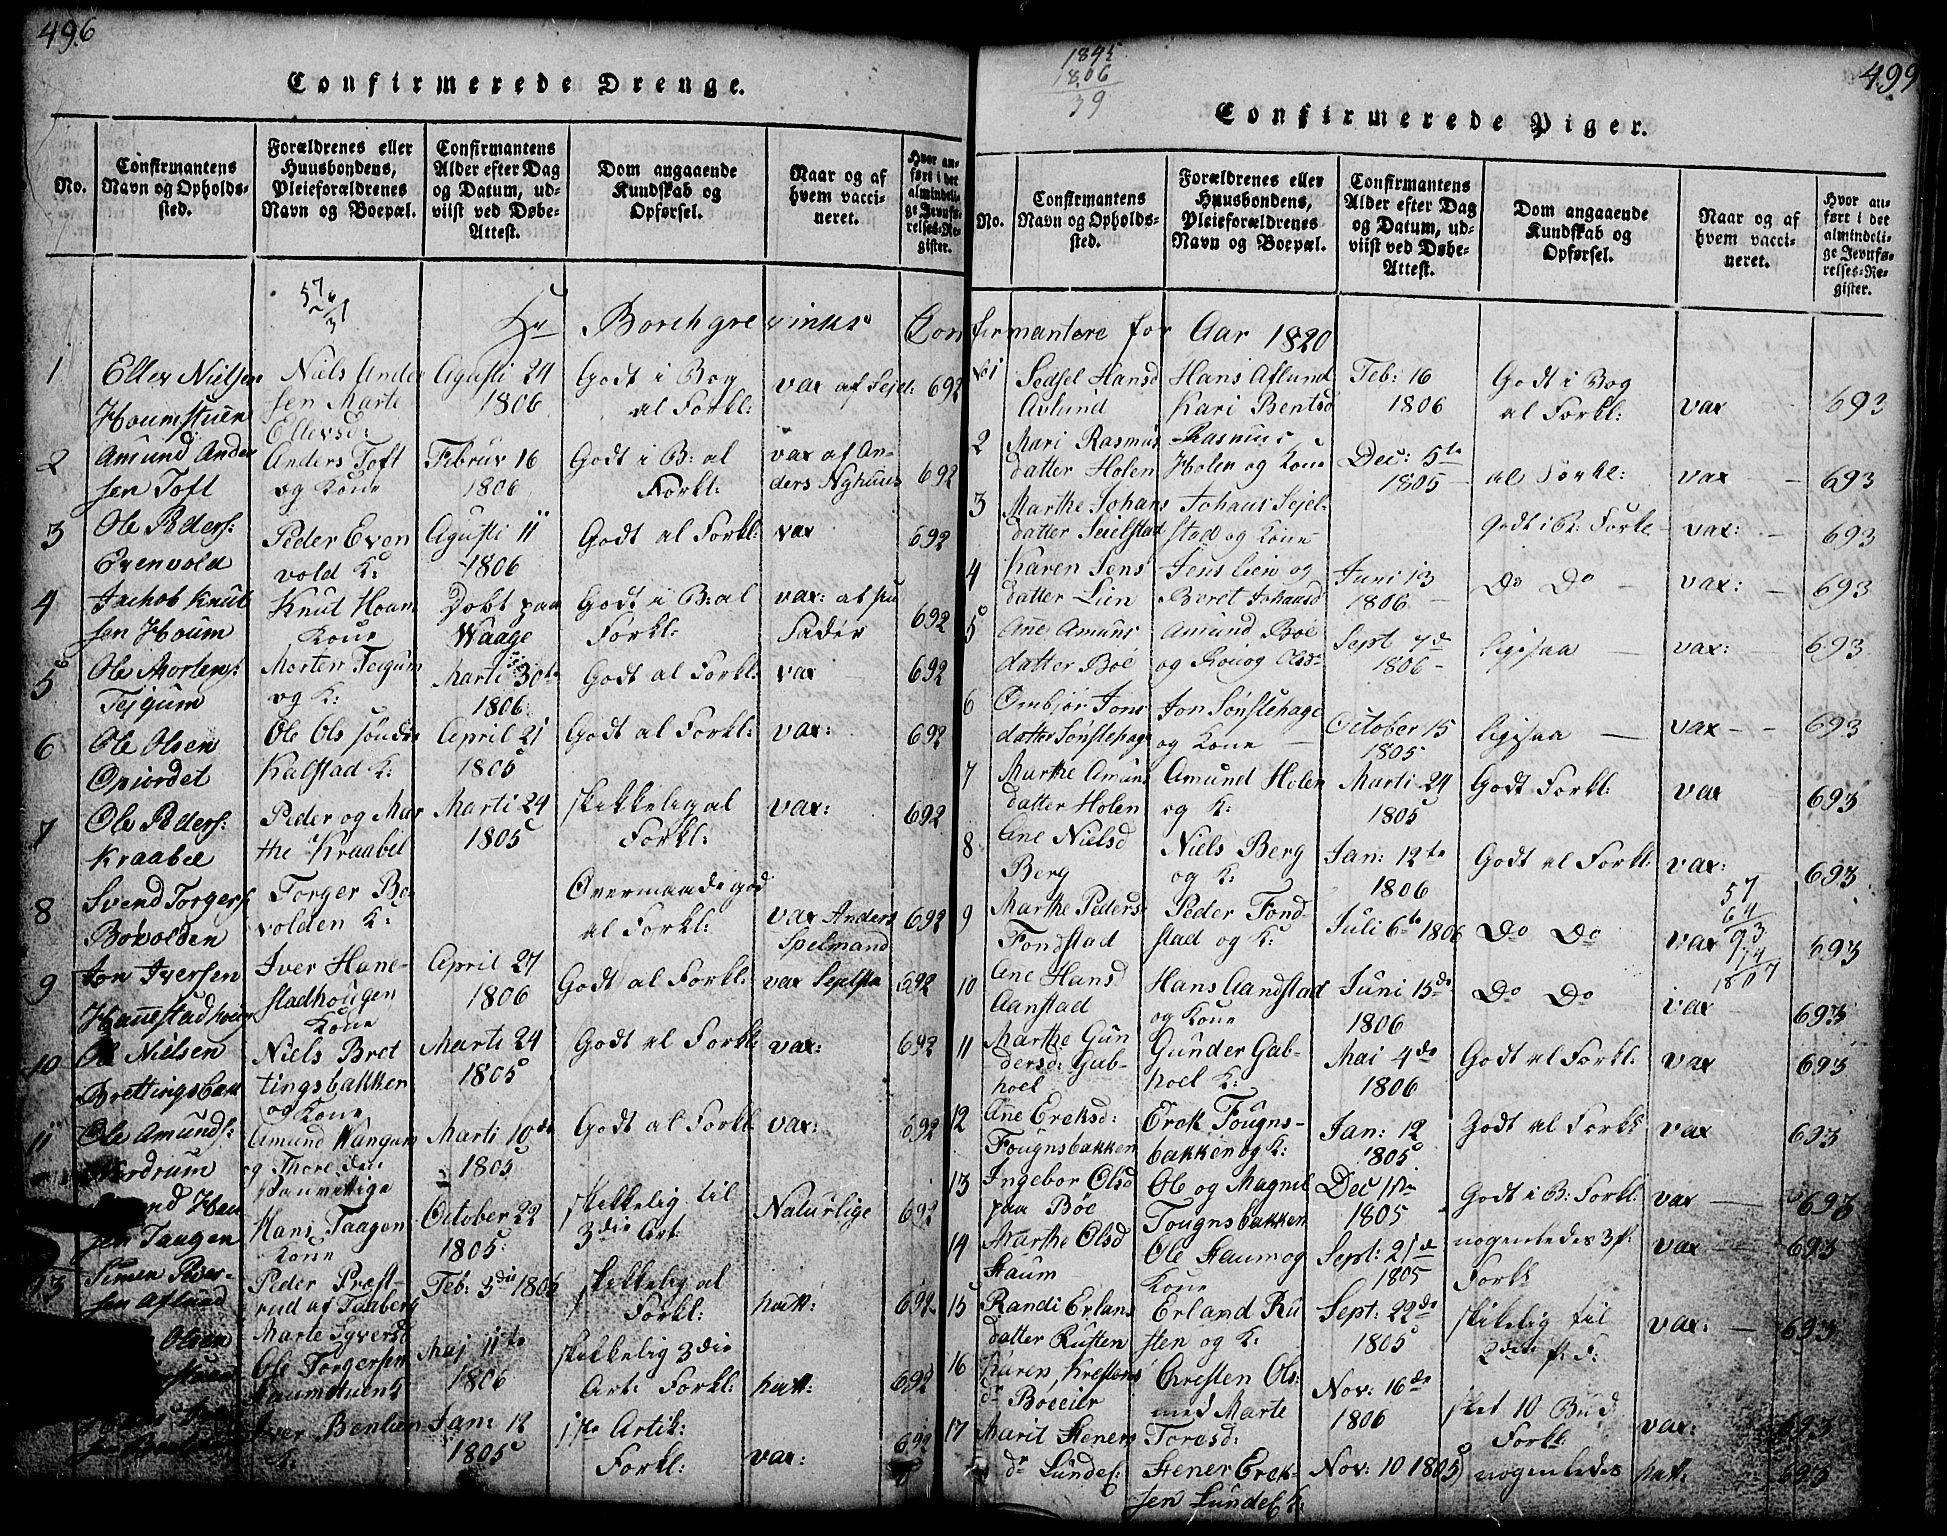 496
Confirmerede Drenge.
No.
Confirmantens Navn og Opholds-sted.
Forældrenes eller Huusbondens, Pleieforældrenes Navn og Boepæl.
Confirmantens Alder efter Dag og Datum, ud-viist ved Døbe-Attest.
Dom angaaende Kundskab og Opførsel.
Naar og af hvem vacci-neret.
Hvor an-ført i det almindeli-ge Jevnfø-relses-Re-gister.
Borchgrevinks Con
1 Ellev Nielsen Houmstuen Niels Ander sen Marte Ellevsd: Agusti 24 1806 Godt i Bog al Forkl: vax af Sejel: 692
2 Amund Ander sen Toft Anders Toft og Kone Februv 16 1806 Godt i B: al Forkl: vax af An-ders Nghuus 692
3 Ole Peders: Evenvold Peder Even vold K: Agusti 11 1806 Godt al Forkl: vax 692
4 Jachob Knut sen Houm Knut Houm Kone Døbt paa Waage Godt i B: al Forkl: vax: af sin Fader 692
5 Ole Mortens: Tejgum Morten Teigum og K: Marti 30te 1806 Godt al Forkl: vax 692
6 Ole Olsen Opiordet Ole Ols søndre Kalstad K: April 21 1805 Godt al Forkl: vax: 692
7 Ole Peders: Kraabel Peder og Mar the Kraabel Marti 24 1805 skikkelig al Forkl: vax: 692
8 Svend Torgers: Bovolden Torger Bo-volden K: Overmaade god al Forkl: vax Anders Spelmand 692
9 Jon Iversen Iver Hane-stadhougen Kone April 27 1806 Godt al Forkl: vax 692
10 Ole Nielsen Niels Bret tingsbakken og Kone Marti 24 1805 Godt al Forkl: vax: 692
11 Ole Amunds: Nordrum Amund Vangum Marti 10de 1805 Godt al Forkl: vax: 692
sen Taagen Hans Taagen Kone October 22 1805: skikkelig til 3die Art Naturlige 692
13 Simen Peder-sen Aflund Peder Præst-rud af Faaberg Marte Syversd Feb: 3die 1806 skikkelig al Forkl: hatt: 692
Olsen Ole Torgersen Maj 11te 1806 skikkelig 3die Art: Forkl: hatt: 692
Iver Bentien K: Jan: 12 1805 1ste Artik: Forkl: vax: 692
1845
1806
39
499
Confirmerede Piger.
No.
Confirmantens Navn og Opholds-sted.
Forældrenes eller Huusbondens, Pleieforældrenes Navn og Boepæl.
Confirmantens Alder efter Dag og Datum, ud-viist ved Døbe-Attest.
Dom angaaende Kundskab og Opførsel.
Naar og af hvem vacci-neret.
Hvor an-ført i det almindeli-ge Jevnfø-relses-Re-gister.
firmantere for Aar 1820
1 Sedsel Hansd Avlund Hans Aflund Kari Bentsd Feb: 16 1806 Godt i Bog al Forkl: vax 693
2 Mari Rasmus datter Holen Rasmus Holen og Kone Dec: 5te 1805 al Forkl: vax 693
3 Marthe Johans datter Seielstad Johans Sejel-stad og Kone Godt i B: Forkl vax: 693
4 Karen Jens datter Lien Jens Lien og Beret Johansd Juni 13 1806 Do Do vax: 693
5 Ane Amuns datter Böe Amund Böe og Olsd Sept 7de 1806 ligesaa vax: 693
6 Ombjør Jons datter Sønstehage Jon Sønstehage og Kone October 15 1805 ligesaa vax 693
7 Marthe Amuns datter Holen Amund Holen og K: Marti 24 1805 Godt Forkl: vax 693
8 Ane Nielsd Berg Niels Berg og K: Jan: 12te 1806 Godt al Forkl: vax: 693
9 Marthe Peders Fondstad Peder Fond-stad og K: Juli 6te 1806 Do Do vax 693
57
64
93
114
1807
10 Ane Hansd Aanstad Hans Aandstad og Kone Juni 15de 1806 Do Do vax 693
11 Marthe Gun dersd: Gab-hoel Gunder Gab-hoel K: Mai 4de 1806 Godt al Forkl: vax 693
12 Ane Ereksd: Fougnsbakken Erek Fougns-bakken og K: Jan: 12 1805 Godt al Forkl vax 693
13 Ingebor Olsd paa Böe Ole og Magnil Fougnsbakken Dec 1805 Godt i B: Forkl: vax 693
14 Marthe Olsd Staum Ole Staum og Kone Sept: 21de 1805 nogenledes 3 p: Forkl vax 693
15 Randi Erlans datter Rusten Erland Ru sten og K: Sept: 22de 1805 skikelig til 2den p: F: vax: 693
16 Karen Krestens dr Böeeier Chresten Ols: med Marte Toresd: Nov: 16de 1806 slet 10 Bud Forkl: vax: 693
17 Marit Steners dr Sundel: Stener Erek-sen Sundel K: Nov: 10 1805 nogenledes hatt: 693